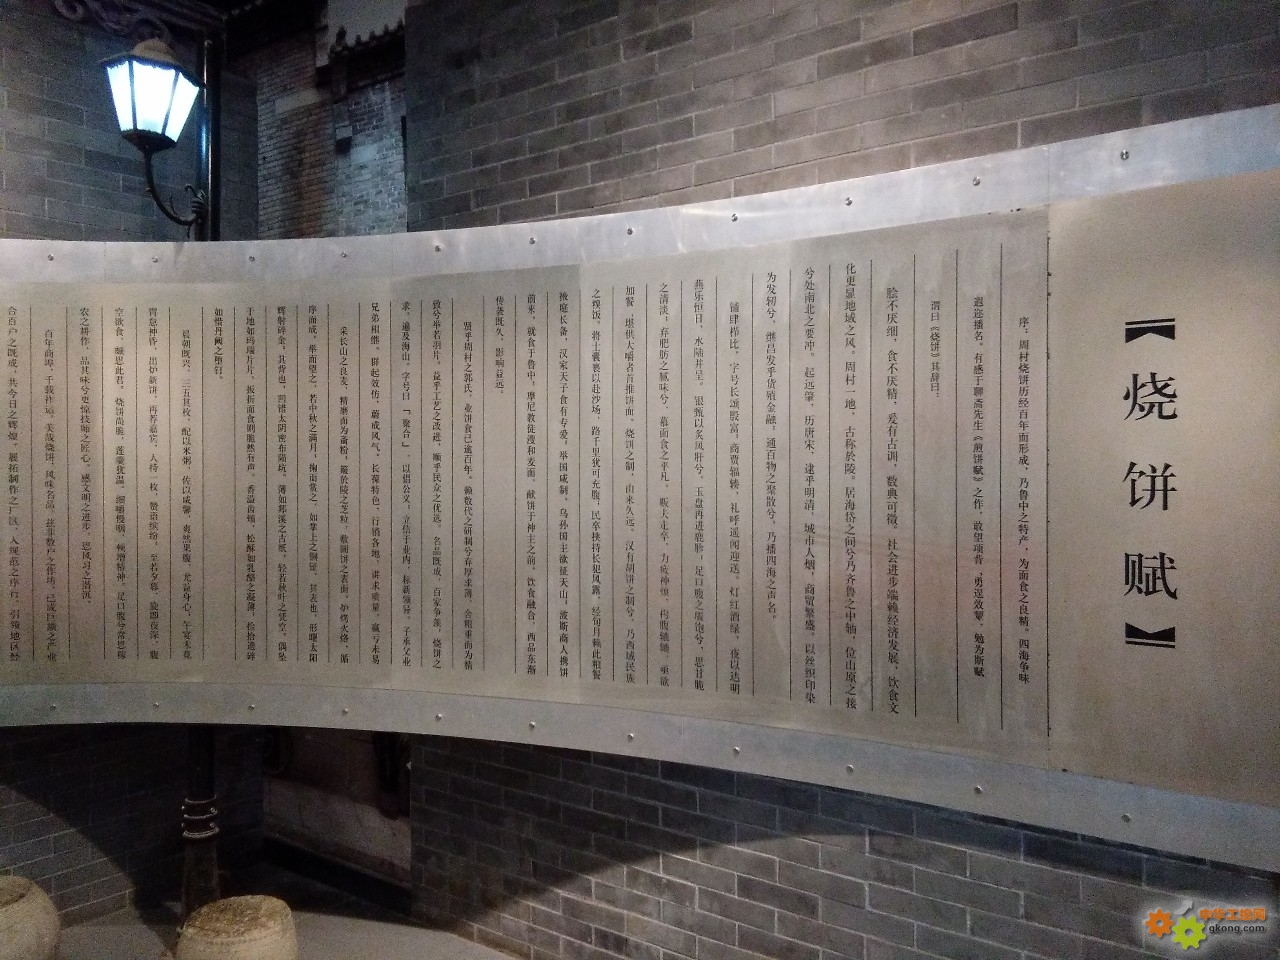 【烧饼赋】
序：周村烧饼历经百年而形成，乃鲁中之特产，为面食之良精。四海争味
遐迩播名。有感于聊斋先生《煎饼赋》之作，敢望项背，勇逞效颦，勉为斯赋
谓曰《烧饼》其辞曰：
脍不厌细，食不厌精，爰有古训，数典可徵。社会进步端赖经济发展，饮食文
化更显地域之风。周村一地，古称於陵。居海岱之间兮乃齐鲁之中轴，位山原之接
兮处南北之要冲，起远肇，历唐宋，逮乎明清，城市人烟，商贸繁盛，以丝织印染
为发轫兮，继昌发乎货殖金融，通百物之聚散兮，乃播四海之声名。
铺肆栉比，字号长颂殷富。商贾辐辏，礼呼遥闻迎送。灯红酒绿，夜以达明
燕乐恒日，水陆并呈。银甑以炙凤肝兮，玉盘再进鹿胗，足口腹之餍饱兮，思甘脆
之清淡，弃肥肪之腻味兮，慕面食之平凡。贩夫走卒，力疲神倦，枵腹辘辘，亟欲
加餐，堪供大嚼者首推饼面。烧饼之制，由来久远。汉有胡饼之制兮，乃西域民族
之馍饭。将士裹以赴沙场，路千里犹可充腹，民卒挟持长犯风露，经旬月赖此粗餐
掖庭长备，汉家天子食有专爱，举国咸制，乌孙国主欲征天山，波斯商人携饼
前来，就食于鲁中，摩尼教徒溲和麦面，献饼于神主之前。饮食融合，西品东渐
传袭既久，影响益远。
贤乎周村之郭氏，业饼食已逾百年。赖数代之研制兮弃厚求薄，舍粗重而为精
致兮举若羽片，益乎工艺之改进，顺乎民众之优选。名品既成，百家争羡，烧饼之
求，遍及海山。字号曰「聚合」，以倡公义，立结于业内，标新领异。子承父业
兄弟相继，群起效仿，蔚成风气，长葆特色，行销各地，讲求质量，赢亏未易
采长山之良麦，精磨而为齑粉，簸於陵之芝粒，敷圆饼之表面。炉烤火烙，循
序而成，举而望之，若中秋之满月，掬而赏之，如掌上之铜钲。其表也，形曜太阳
辉射碎金，其背也，凹错太阴密布陨坑。薄如郑溪之古纸，轻若秋叶之凭空，偶坠
于地如玛瑙片片，扳折而食则脆然有声。香溢齿颊，松酥如乳酪之凝薄，捡拾遗碎
如惜丹阙之堕钉。
晨朝既兴，三五其枚，配以米粥，佐以咸馨，爽然果腹，尤益身心。午宴未竟
胃怠神昏，出炉新饼，再荐嘉宾，人持一枚，赞语缤纷。至若夕暮，旋即夜深，腹
空欲食，颇思此君。烧饼尚脆，莲羹犹温，细嚼慢咽，顿增精神。足口腹兮常思稼
农之耕作，品其味兮更惊技师之匠心。感文明之进步，恐风习之潜沉。
百年商埠，千载祚运。美哉烧饼，风味名品，兹非数户之作场，已成巨城之产业
合百户之既成，共今日之辉煌。展拓制作之厂区，入规范之序行，引领地区经
中华工控网
gkong.com